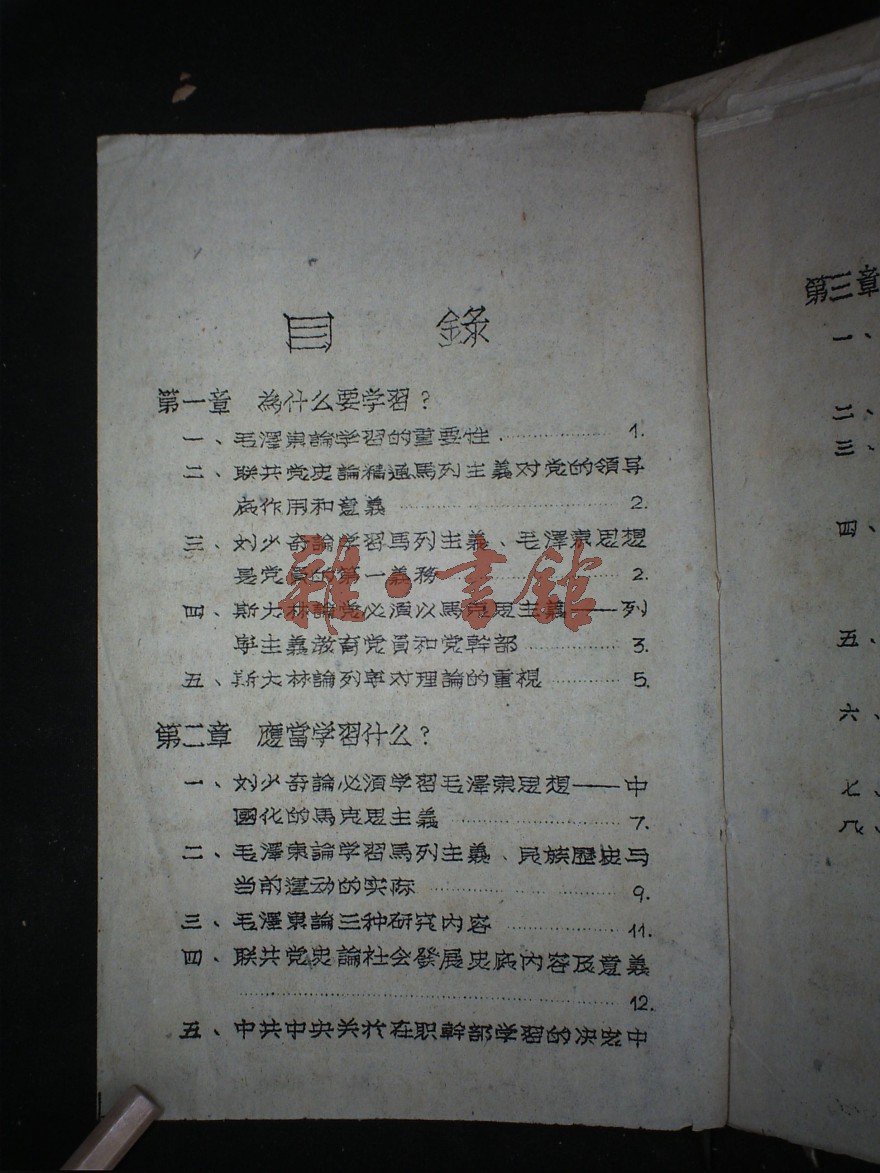 目 錄
第一章 為什么要学習？
一、毛澤東論学習的重要性 …………… 1.
二、联共党史論精通馬列主義对党的領导
底作用和意義 …………… 2.
三、刘少奇論学習馬列主義、毛澤東思想
是党員的第一義務 …………… 2.
四、斯大林論党必須以馬克思主義——列
寧主義教育党員和党幹部 …………… 3.
五、斯大林論列寧对理論的重視 …………… 5.
第二章 應當学習什么？
一、刘少奇論必須学習毛澤東思想——中
國化的馬克思主義 …………… 7.
二、毛澤東論学習馬列主義、民族歷史与
当前運动的实际 …………… 9.
三、毛澤東論三种研究内容 …………… 11.
四、联共党史論社会發展史底内容及意義
…………… 12.
五、中共中央关於在职幹部学習的决定中
雜·書館
第三章
一、
二、
三、
四、
五、
六、
七、
八、